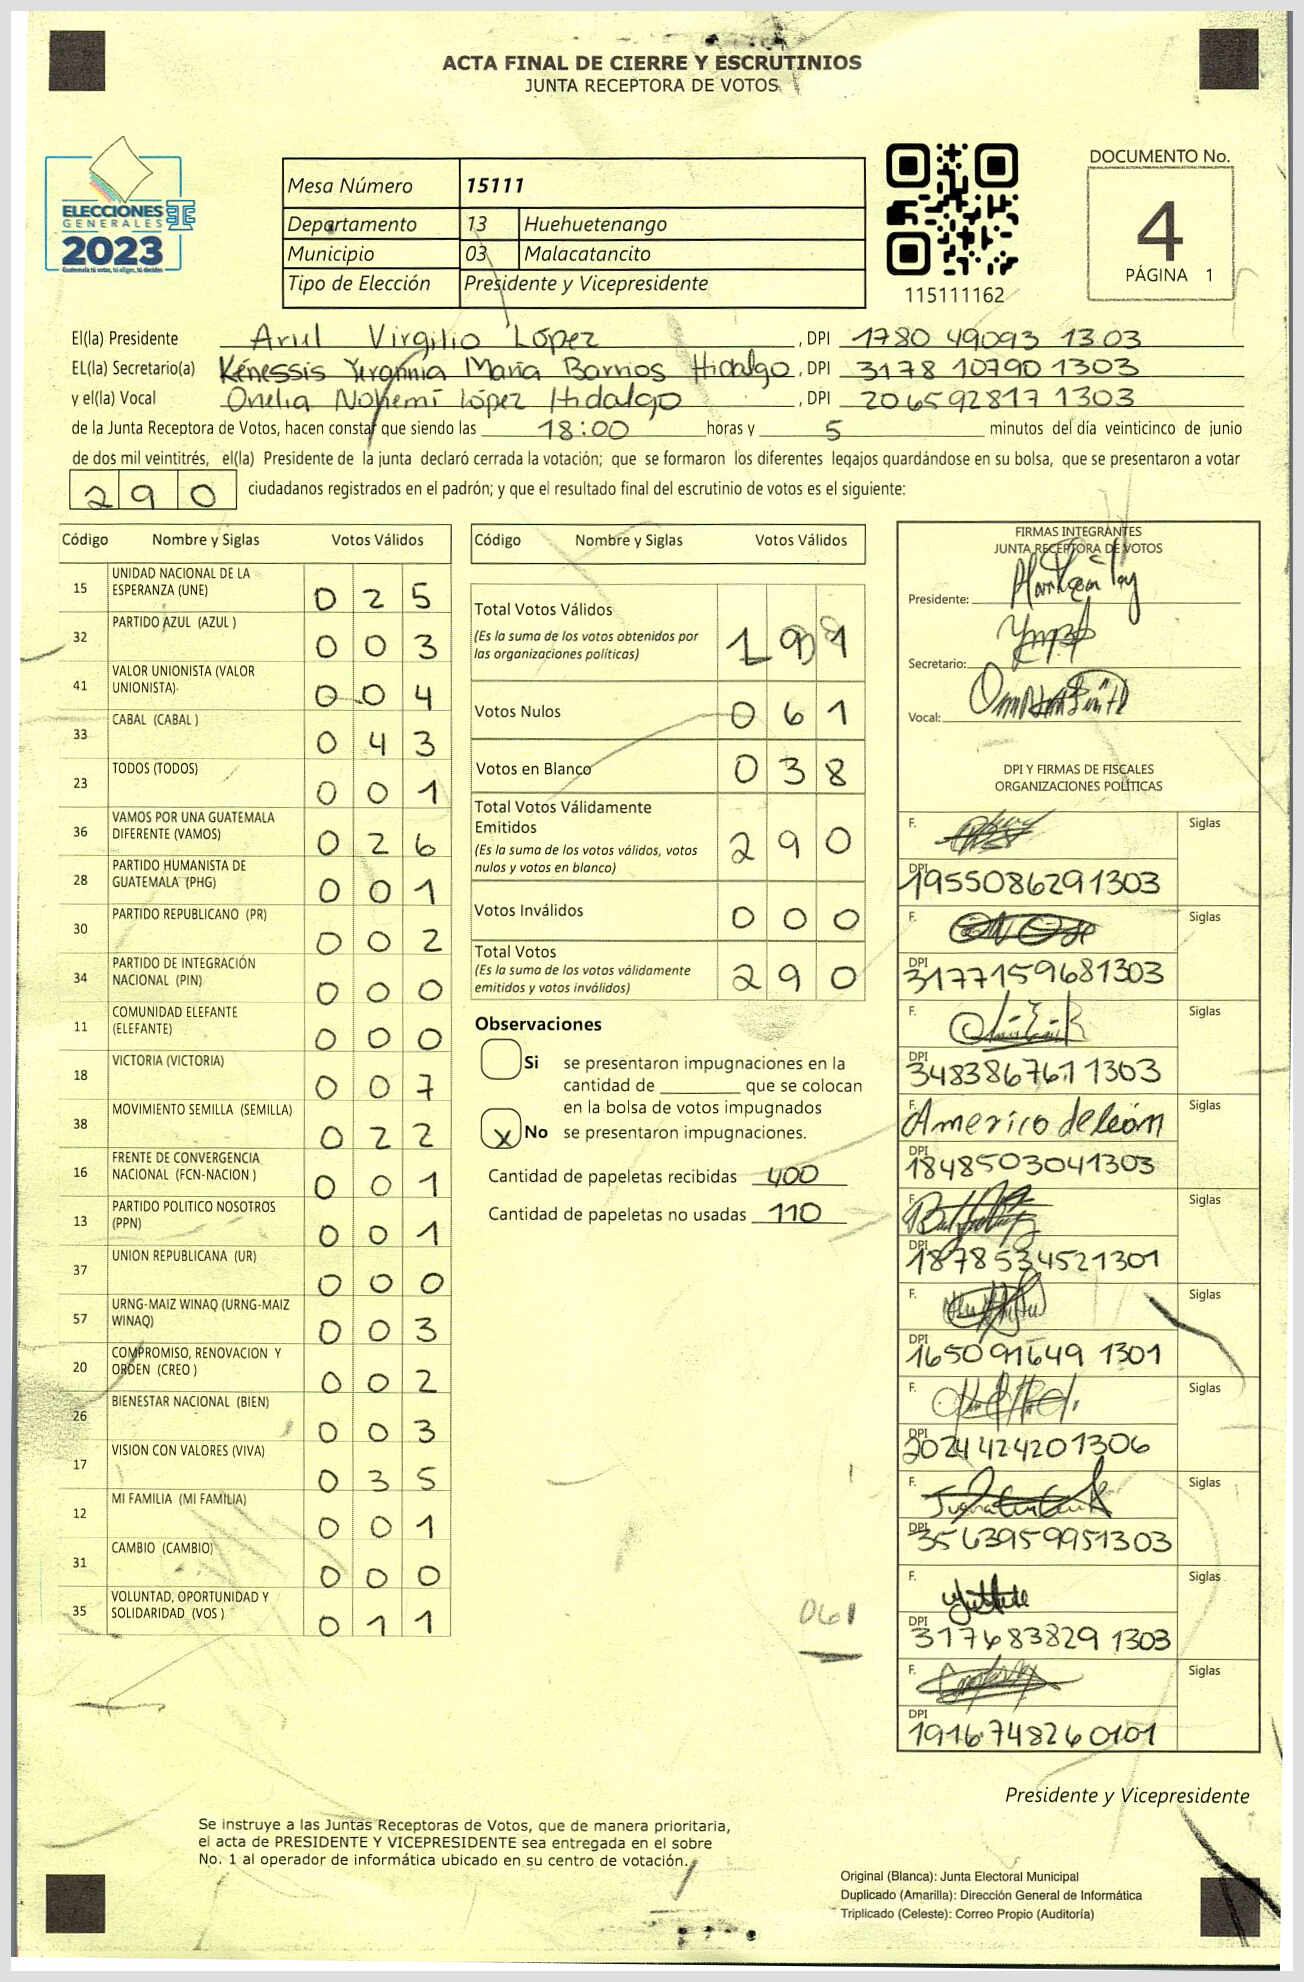 ACTA FINAL DE CIERRE Y ESCRUTINIOS
JUNTA RECEPTORA DE VOTOS
ELECCIONES
GENERALES
2023
Guatemala tú votas, tú eliges, tú decides
Mesa Número 15111
Departamento 13 Huehuetenango
Municipio 03 Malacatancito
Tipo de Elección Presidente y Vicepresidente
115111162
DOCUMENTO No.
4
PÁGINA 1
El(la) Presidente Virgilio López, DPI 1780 49093 1303
EL(la) Secretario(a) Kénessis María Barrios Hidalgo, DPI 3178 10790 1303
y el(la) Vocal Onelia Nohemí López Hidalgo, DPI 206592817 1303
de la Junta Receptora de Votos, hacen constar que siendo las 18:00 horas y 5 minutos del día veinticinco de junio
de dos mil veintitrés, el(la) Presidente de la junta declaró cerrada la votación; que se formaron los diferentes legajos guardándose en su bolsa, que se presentaron a votar
290 ciudadanos registrados en el padrón; y que el resultado final del escrutinio de votos es el siguiente:
Código Nombre y Siglas Votos Válidos
15 UNIDAD NACIONAL DE LA ESPERANZA (UNE) 025
32 PARTIDO AZUL (AZUL ) 003
41 VALOR UNIONISTA (VALOR UNIONISTA) 004
33 CABAL (CABAL ) 043
23 TODOS (TODOS) 001
36 VAMOS POR UNA GUATEMALA DIFERENTE (VAMOS) 026
28 PARTIDO HUMANISTA DE GUATEMALA (PHG) 001
30 PARTIDO REPUBLICANO (PR) 002
34 PARTIDO DE INTEGRACIÓN NACIONAL (PIN) 000
11 COMUNIDAD ELEFANTE (ELEFANTE) 000
18 VICTORIA (VICTORIA) 007
38 MOVIMIENTO SEMILLA (SEMILLA) 022
16 FRENTE DE CONVERGENCIA NACIONAL (FCN-NACION ) 001
13 PARTIDO POLITICO NOSOTROS (PPN) 001
37 UNION REPUBLICANA (UR) 000
57 URNG-MAIZ WINAQ (URNG-MAIZ WINAQ) 003
20 COMPROMISO, RENOVACION Y ORDEN (CREO ) 002
26 BIENESTAR NACIONAL (BIEN) 003
17 VISION CON VALORES (VIVA) 035
12 MI FAMILIA (MI FAMILIA) 001
31 CAMBIO (CAMBIO) 000
35 VOLUNTAD, OPORTUNIDAD Y SOLIDARIDAD (VOS ) 011
Código Nombre y Siglas Votos Válidos
Total Votos Válidos 191
(Es la suma de los votos obtenidos por
las organizaciones políticas)
Votos Nulos 061
Votos en Blanco 038
Total Votos Válidamente
Emitidos 290
(Es la suma de los votos válidos, votos
nulos y votos en blanco)
Votos Inválidos 000
Total Votos 290
(Es la suma de los votos válidamente
emitidos y votos inválidos)
Observaciones
Si se presentaron impugnaciones en la
cantidad de ________ que se colocan
en la bolsa de votos impugnados
x No se presentaron impugnaciones.
Cantidad de papeletas recibidas 400
Cantidad de papeletas no usadas 110
061
FIRMAS INTEGRANTES
JUNTA RECEPTORA DE VOTOS
Presidente:
Secretario:
Vocal:
DPI Y FIRMAS DE FISCALES
ORGANIZACIONES POLÍTICAS
F. Siglas
DPI 1955086291303
F. Siglas
DPI 3177159681303
F. Siglas
DPI 3483867611303
F. Americo de león Siglas
DPI 1848503041303
F. Siglas
DPI 1878534521301
F. Siglas
DPI 165091649 1301
F. Siglas
DPI 2024424201306
F. Siglas
DPI 3563959951303
F. Siglas
DPI 317683829 1303
F. Siglas
DPI 1916748260101
Presidente y Vicepresidente
Se instruye a las Juntas Receptoras de Votos, que de manera prioritaria,
el acta de PRESIDENTE Y VICEPRESIDENTE sea entregada en el sobre
No. 1 al operador de informática ubicado en su centro de votación.
Original (Blanca): Junta Electoral Municipal
Duplicado (Amarilla): Dirección General de Informática
Triplicado (Celeste): Correo Propio (Auditoría)